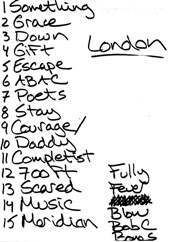 1 Something
2 Grace
3 Down
4 Gift
5 Escape
6 ABAC
7 Poets
8 Stay
9 Courage/
10 Daddy
11 Completist
12 700 Ft
13 Scared
14 Music
15 Meridian
London
Fully
Fever
Blow
BobC